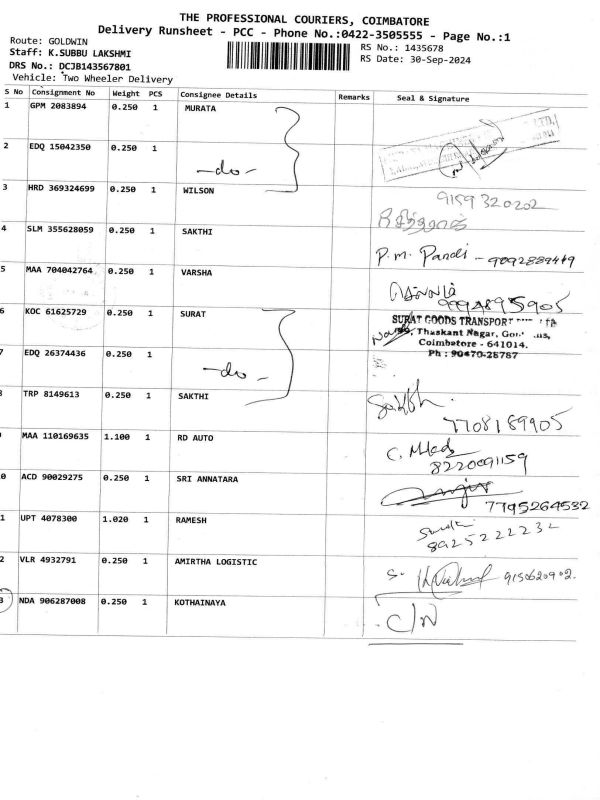 THE PROFESSIONAL COURIERS, COIMBATORE
Delivery Runsheet - PCC - Phone No.:0422-3505555 - Page No.:1
Route: GOLDWIN
RS No.: 1435678
Staff: K.SUBBU LAKSHMI
RS Date: 30-Sep-2024
DRS No.: DCJB143567801
Vehicle: Two Wheeler Delivery
S No Consignment No Weight PCS Consignee Details Remarks Seal & Signature
1 GPM 2083894 0.250 1 MURATA
2 EDQ 15042350 0.250 1 -do-
3 HRD 369324699 0.250 1 WILSON 9159320202
4 SLM 355628059 0.250 1 SAKTHI P.M. Pandi - 9092889419
5 MAA 704042764 0.250 1 VARSHA 9994895905
6 KOC 61625729 0.250 1 SURAT SURAT GOODS TRANSPORT
Thaskant Nagar,
Coimbatore - 641014.
Ph : 90470-28787
7 EDQ 26374436 0.250 1 -do-
TRP 8149613 0.250 1 SAKTHI
7708189905
MAA 110169635 1.100 1 RD AUTO
8220091159
0 ACD 90029275 0.250 1 SRI ANNATARA
7795264532
1 UPT 4078300 1.020 1 RAMESH
8925222232
2 VLR 4932791 0.250 1 AMIRTHA LOGISTIC 9150620902.
3 NDA 906287008 0.250 1 KOTHAINAYA C/N